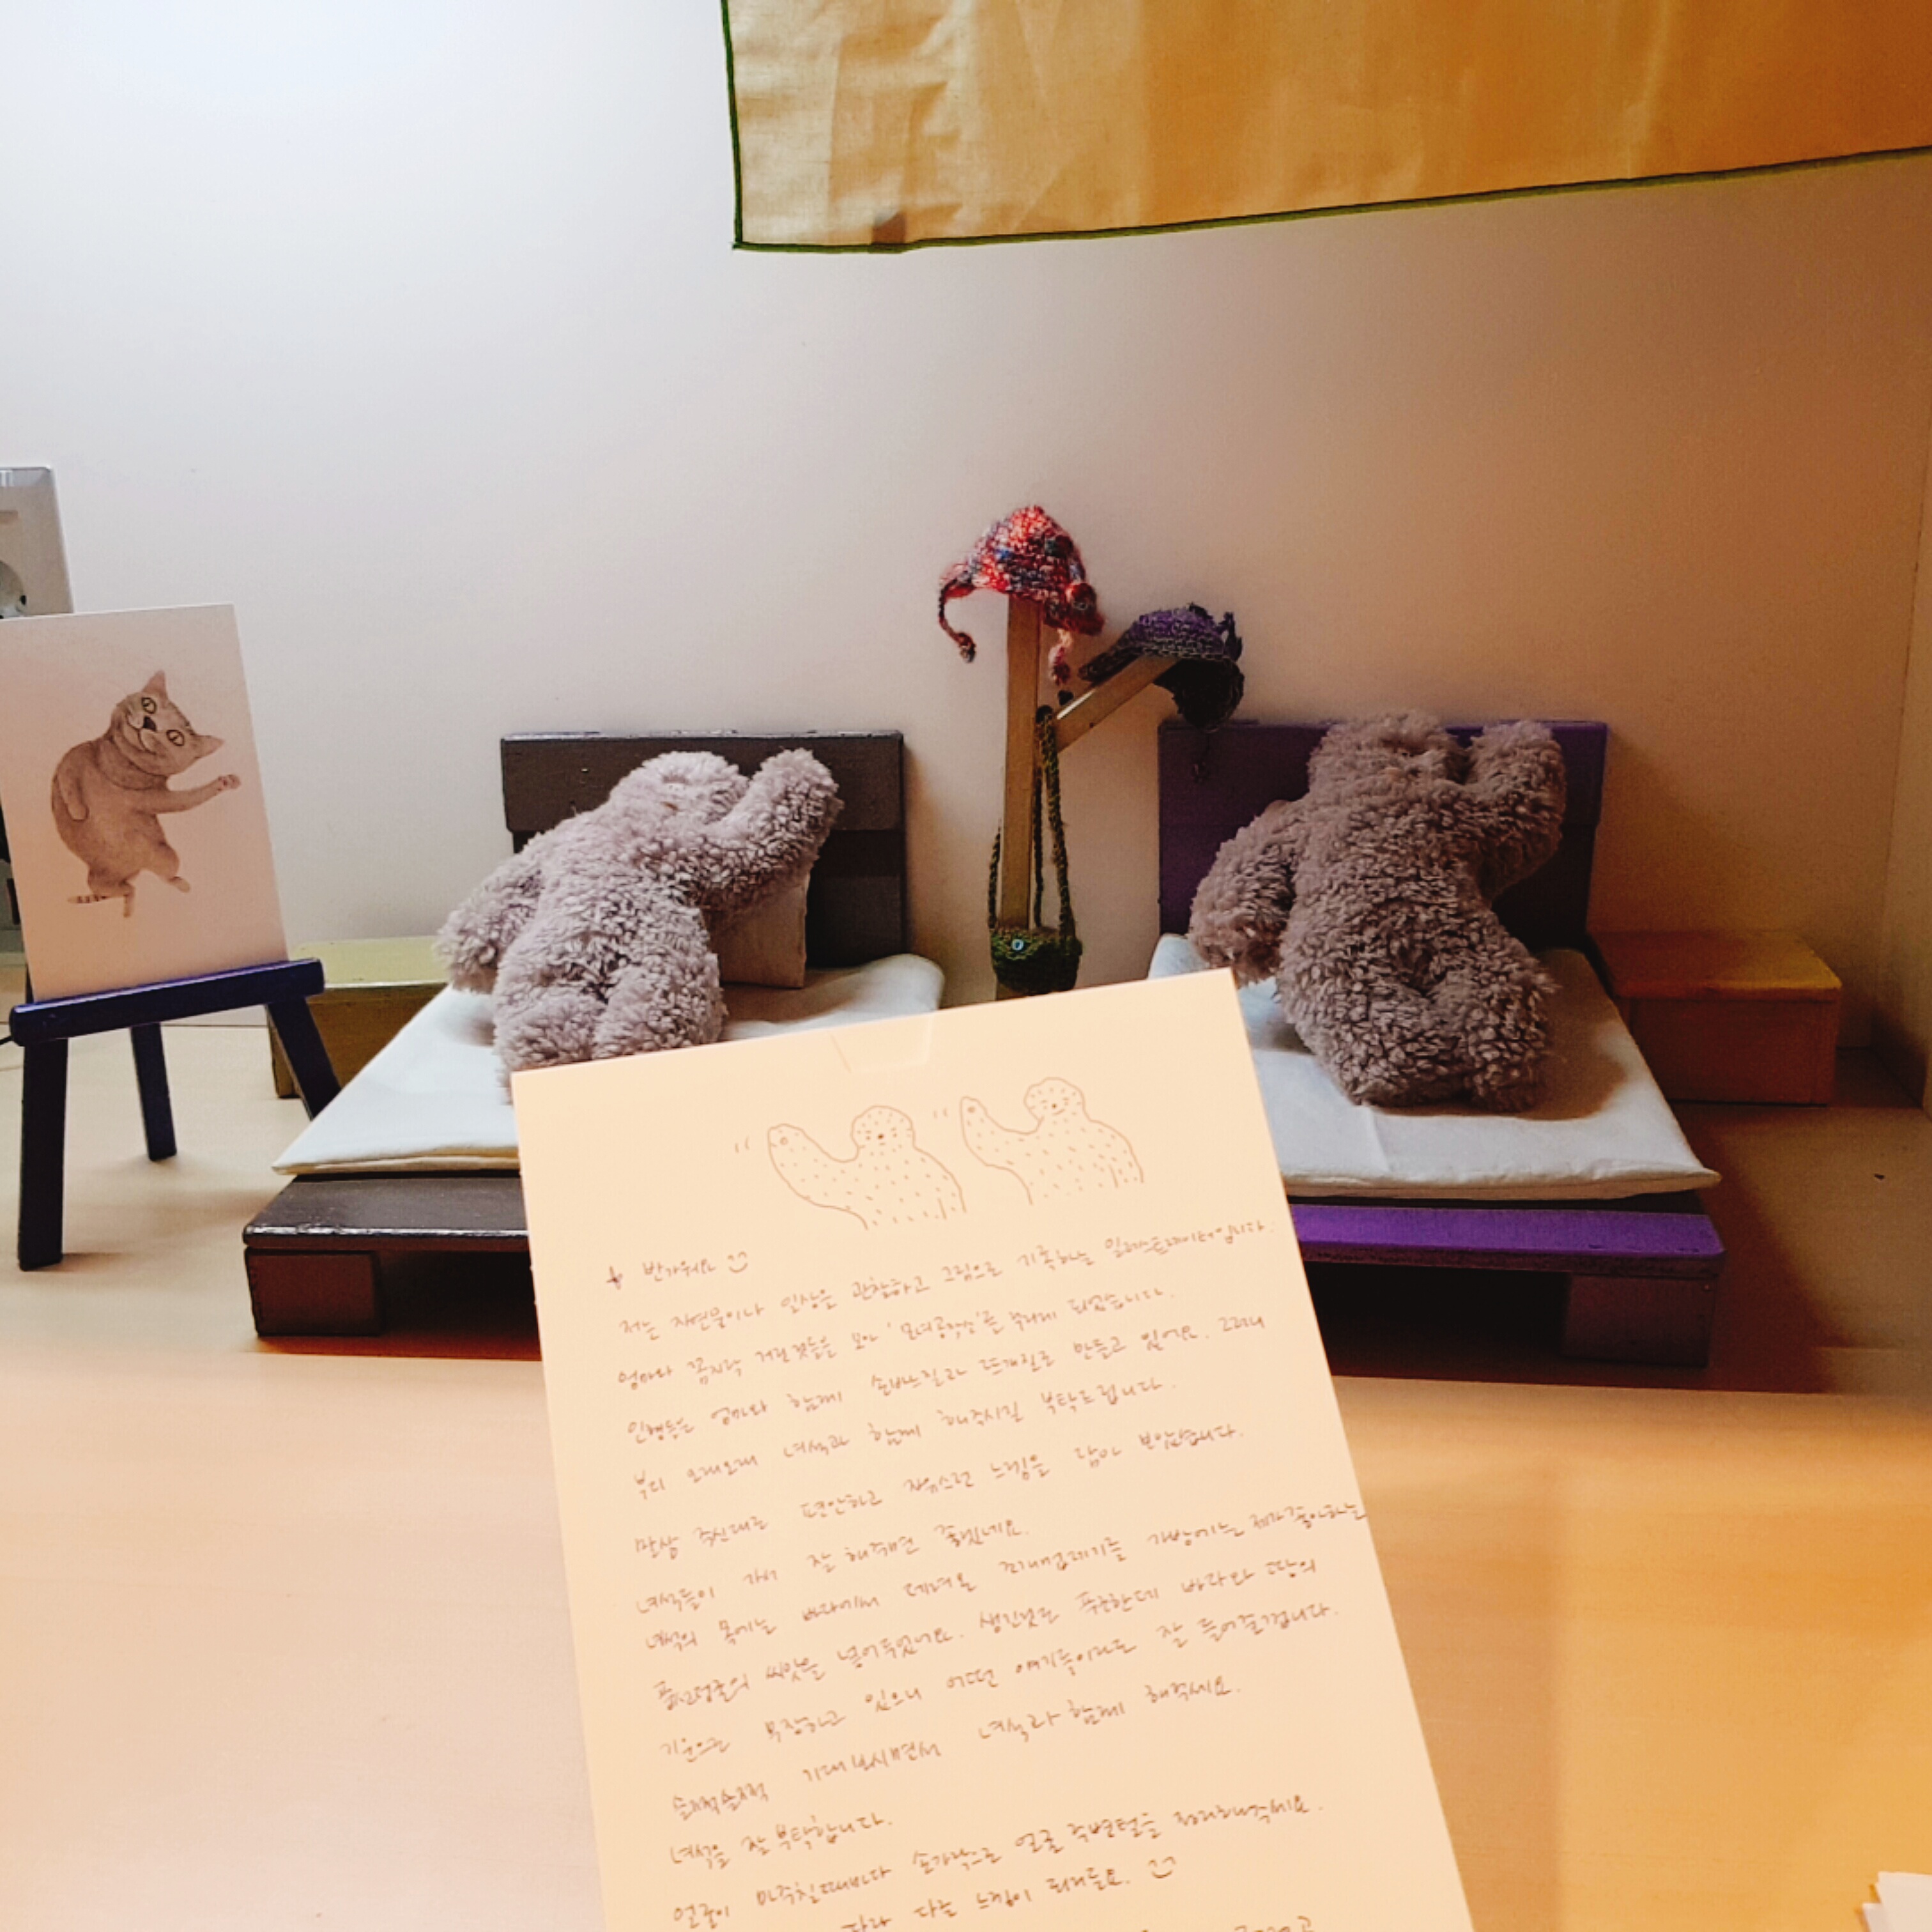 반가워요
저는 자연물이나 일상을 관찰하고 그림으로 기록하는 일러스트레이터입니다.
엄마와 꼼지락 거린것들을 모아 '모녀공작소'를 차리게 되었습니다.
인형들은 엄마와 함께 손바느질과 뜨개질로 만들고 있어요. 그러니
부디 오래오래 녀석과 함께 해주시길 부탁드립니다.
말씀 주신대로 편안하고 자유스런 느낌을 담아 보았습니다.
녀석들이 가서 잘 해주면 좋겠네요.
녀석의 목에는 바다에서 데려온 조개껍데기를 가방에는 제가 좋아하는
풍선덩굴의 씨앗을 넣어두었어요. 생긴것도 푸근한데 바다와 땅의
기운으로 무장하고 있으니 어떤 얘기들이라도 잘 들어줄겁니다.
슬쩍슬쩍 기대보시면서 녀석과 함께 해주세요.
녀석을 잘 부탁합니다.
얼굴이 마주칠때마다 손가락으로 얼굴 주변털을 정리해주세요.
따라 다른 느낌이 되거든요.